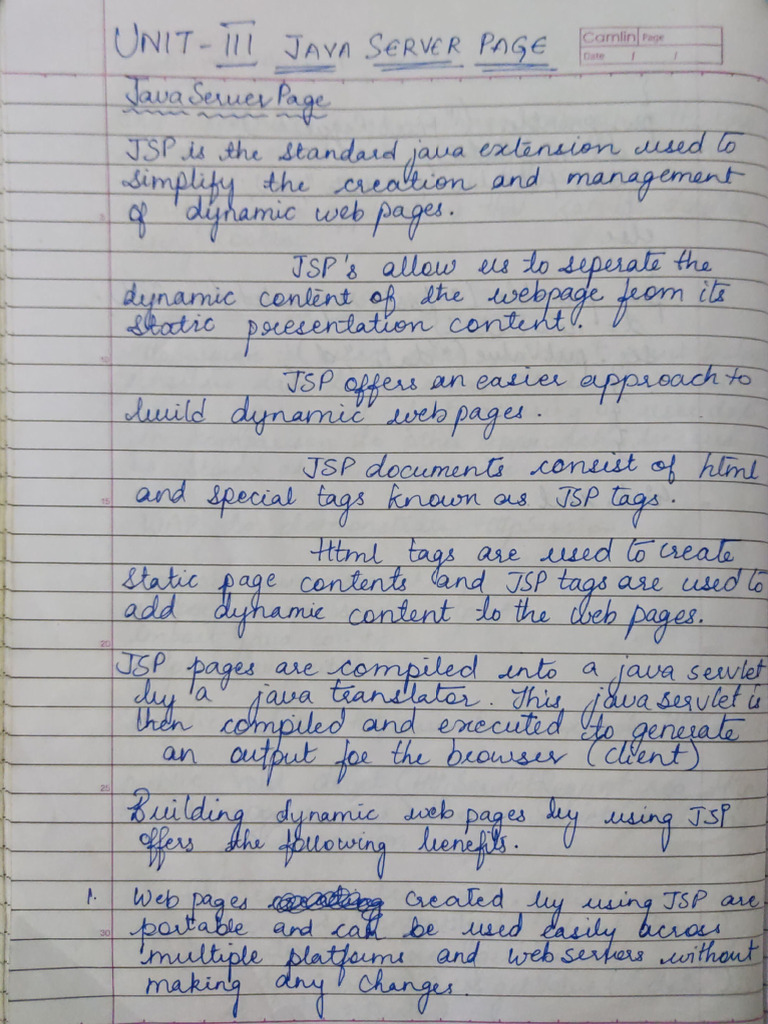 UNIT-III JAVA SERVER PAGE
Camlin Page
Date / /
Java Server Page
JSP is the standard java extension used to
simplify the creation and management
of dynamic web pages.
JSP's allow us to seperate the
dynamic content of the webpage from its
static presentation content.
JSP offers an easier approach to
build dynamic web pages.
JSP documents consist of html
and special tags known as JSP tags.
Html tags are used to create
static page contents and JSP tags are used to
add dynamic content to the web pages.
JSP pages are compiled into a java servlet
by a java translator. This java servlet is
then compiled and executed to generate
an output for the browser (client)
Building dynamic web pages by using JSP
offers the following benefits.
1. Web pages created by using JSP are
portable and can be used easily across
multiple platforms and web servers without
making any changes.